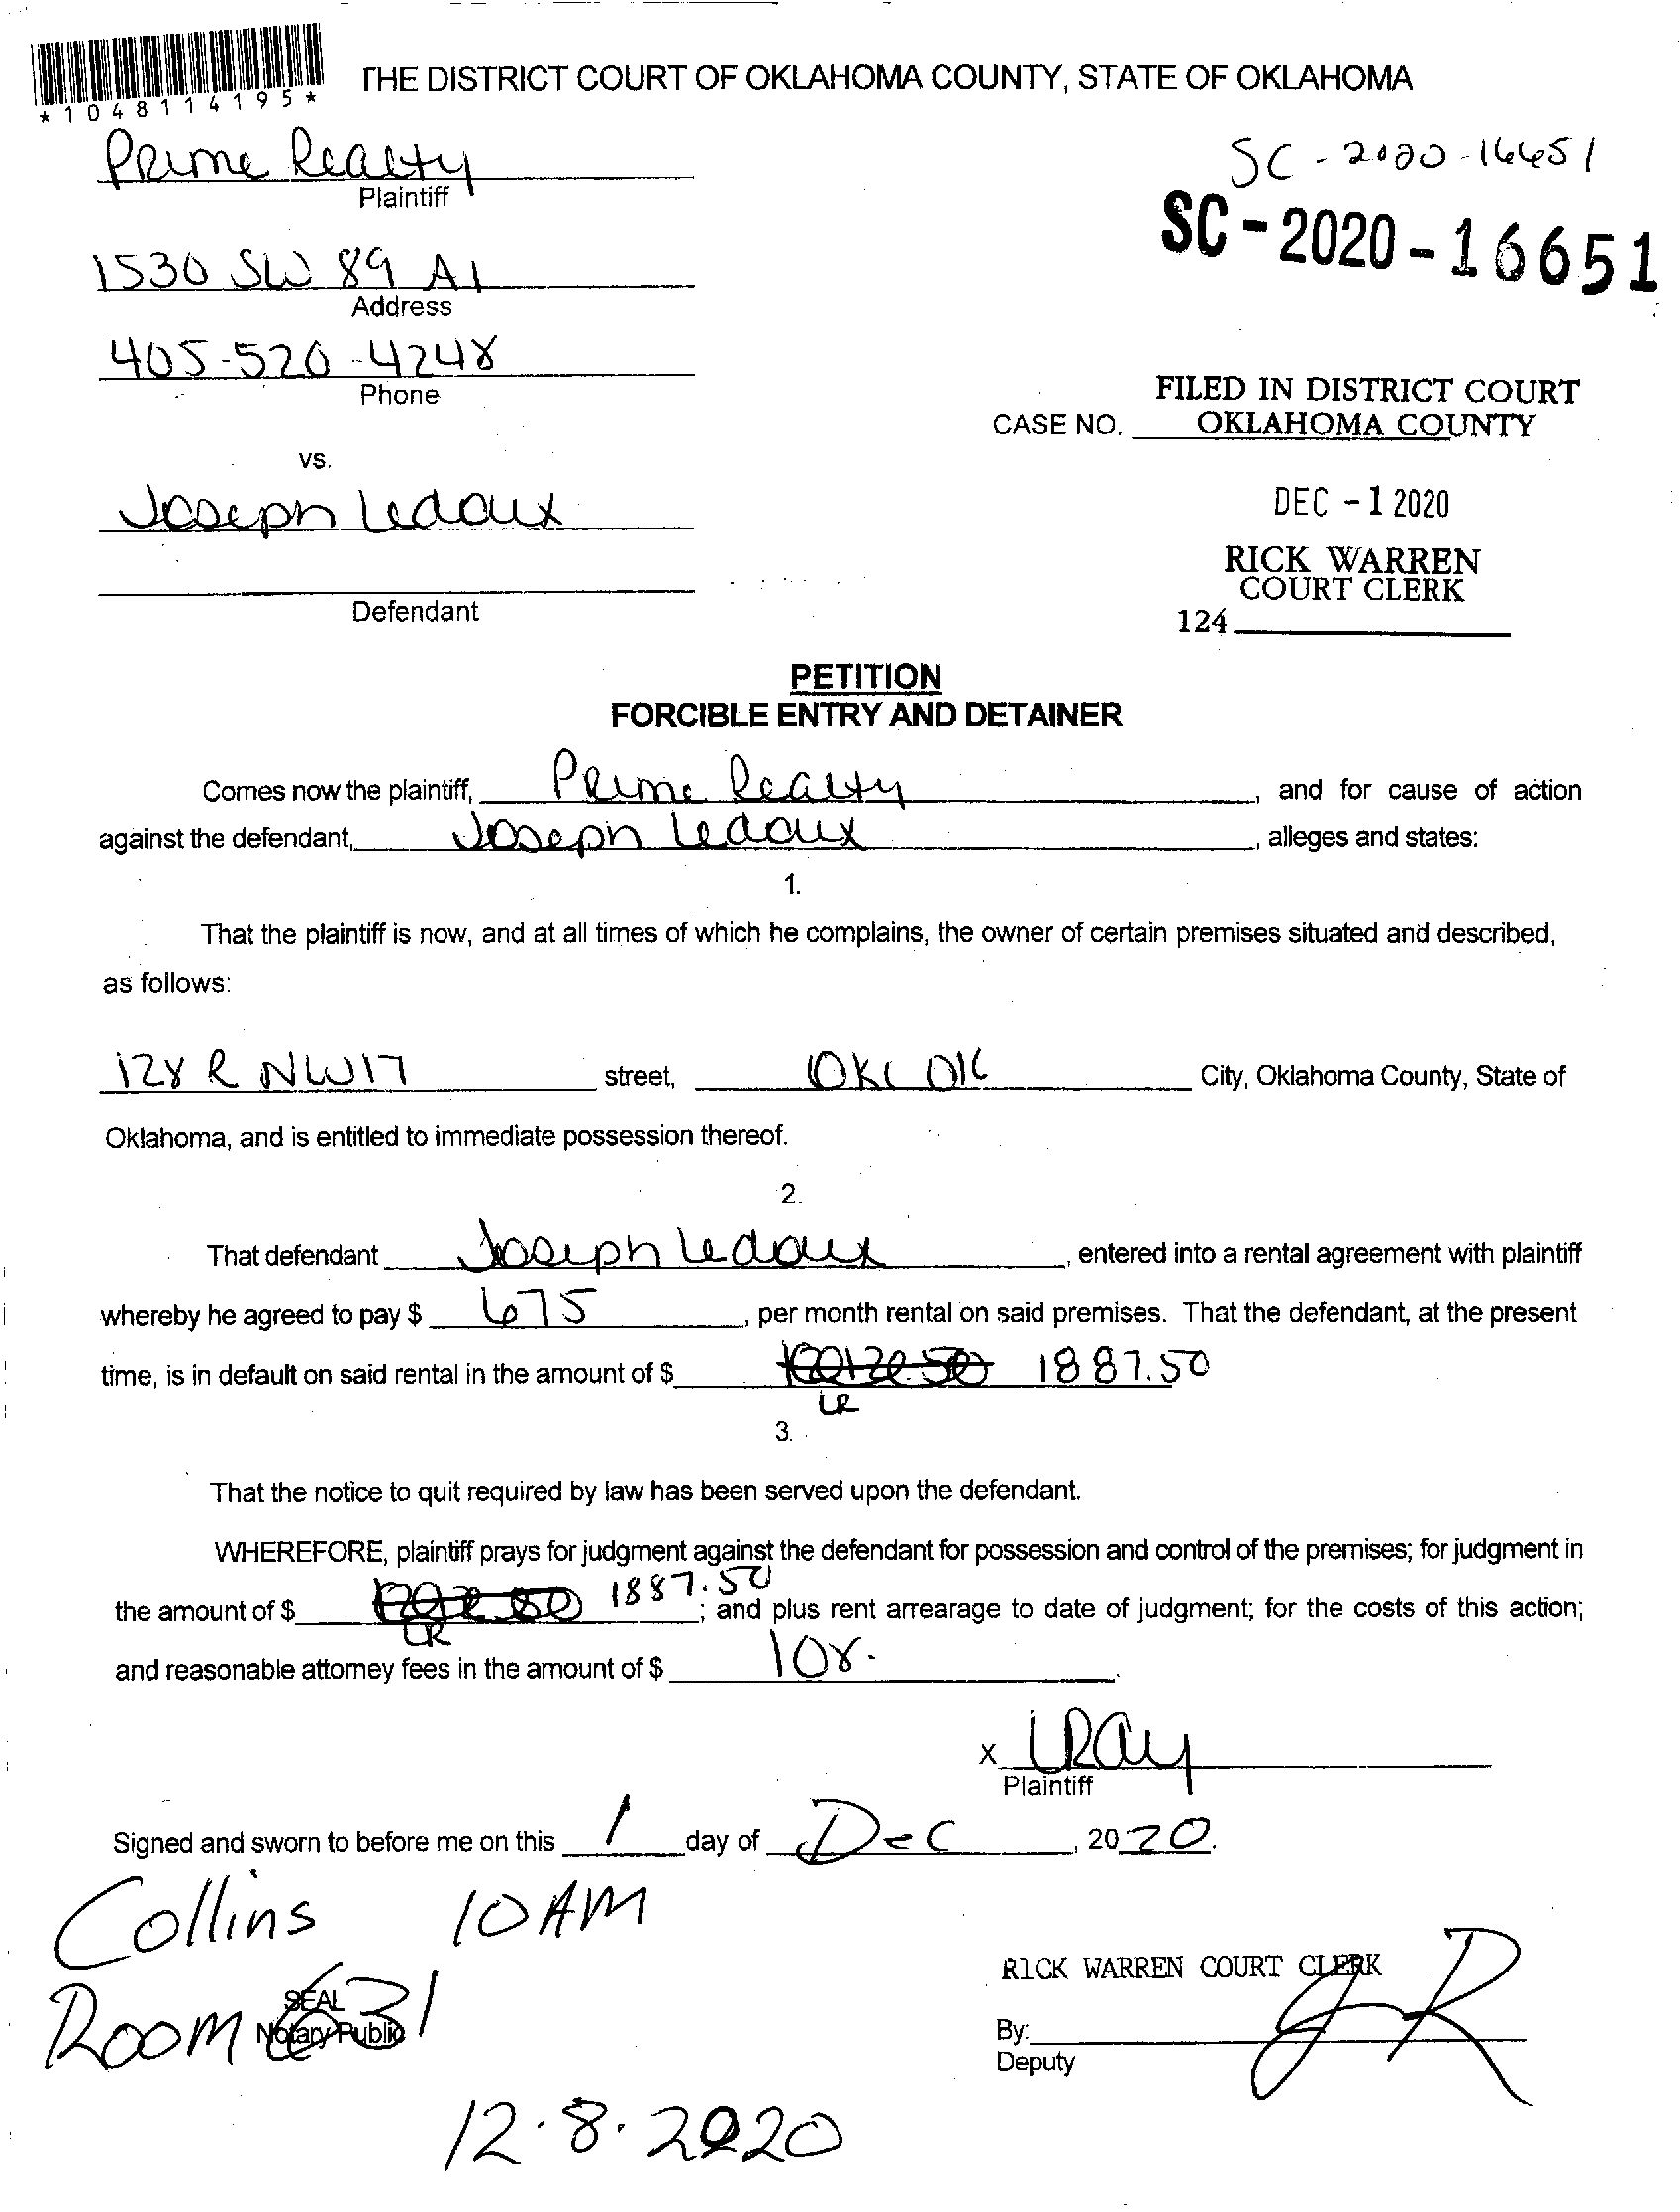 THE DISTRICT COURT OF OKLAHOMA COUNTY, STATE OF OKLAHOMA
*1048114195*
Prime Realty
Plaintiff
SC-2020-16651
SC-2020-16651
1530 SW 89 A1
Address
405-520-4248
Phone
FILED IN DISTRICT COURT
CASE NO. OKLAHOMA COUNTY
vs.
Joseph Ledoux
DEC -1 2020
RICK WARREN
COURT CLERK
Defendant
124
PETITION
FORCIBLE ENTRY AND DETAINER
Comes now the plaintiff, Prime Realty, and for cause of action
against the defendant, Joseph Ledoux, alleges and states:
1.
That the plaintiff is now, and at all times of which he complains, the owner of certain premises situated and described,
as follows:
128 R NW17 street, OKC OK City, Oklahoma County, State of
Oklahoma, and is entitled to immediate possession thereof.
2.
That defendant Joseph Ledoux, entered into a rental agreement with plaintiff
whereby he agreed to pay $ 675, per month rental on said premises. That the defendant, at the present
time, is in default on said rental in the amount of $ 1887.50
LR
3.
That the notice to quit required by law has been served upon the defendant.
WHEREFORE, plaintiff prays for judgment against the defendant for possession and control of the premises; for judgment in
the amount of $ 1887.50; and plus rent arrearage to date of judgment; for the costs of this action;
LR
and reasonable attorney fees in the amount of $ 108.
x LRay
Plaintiff
Signed and sworn to before me on this 1 day of Dec, 2020.
Collins 10AM
RICK WARREN COURT CLERK
SEAL
Room 631
Notary Public
By: JR
Deputy
12.8.2020